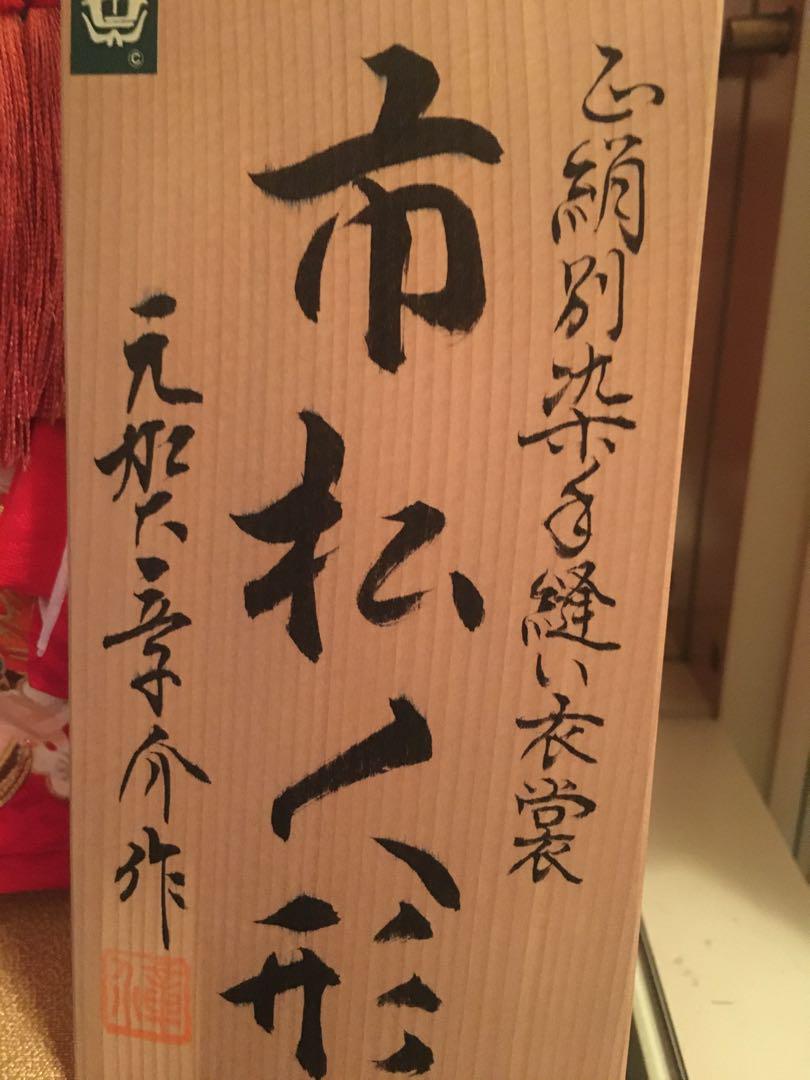 正絹別染手縫い衣裳
市松人形
元賀章介作
©